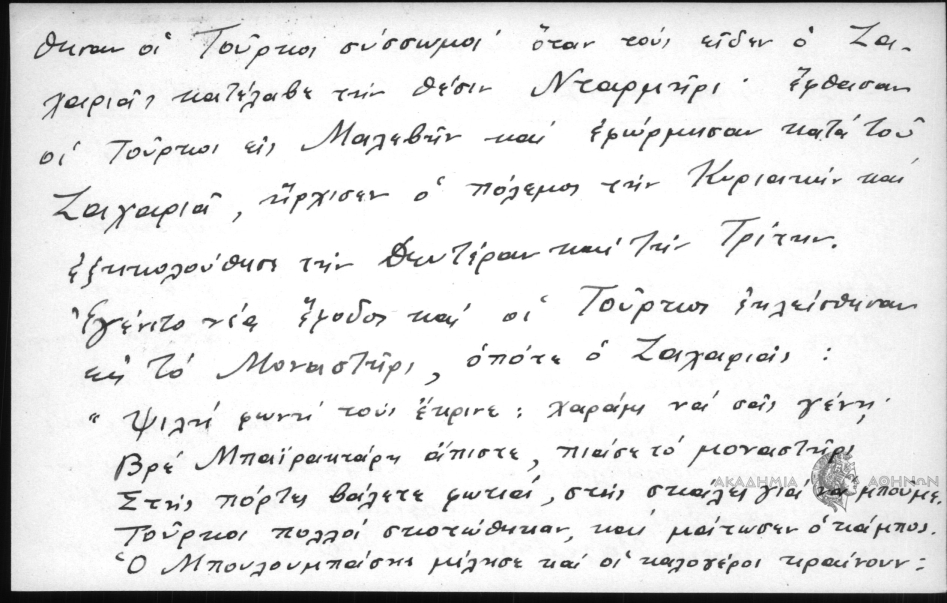 θησαν οἱ Τοῦρκοι σύσσωμοι· ὅταν τούς εἶδεν ὁ Ζα-
χαριᾶς κατέλαβε τήν θέσιν Νταρμπῆρι· ἔφθασαν
οἱ Τοῦρκοι εἰς Μαλεβῆν καί ἐφώρμησαν κατά τοῦ
Ζαχαριᾶ, ἤρχισεν ὁ πόλεμος τήν Κυριακήν καί
ἐξηκολούθησε τήν Δευτέραν καί τήν Τρίτην.
Ἐγένετο νέα ἔφοδος καί οἱ Τοῦρκοι ἐκλείσθησαν
εἰς τό Μοναστῆρι, ὁπότε ὁ Ζαχαριᾶς :
" Ψιλή φωνή τούς ἔκρινε : χαράμι νά σᾶς γένῃ,
Βρέ Μπαϊρακτάρη ἄπιστε, πιάσε τό μοναστῆρι
Στής πόρτες βάλετε φωτιά, στής σκάλες γιά νά μποῦμε.
Τοῦρκοι πολλοί σκοτώθηκαν, καί μάτωσεν ὁ κάμπος.
Ὁ Μπουλουμπάσης μίλησε καί οἱ καλογέροι κραίνουν :
ΑΚΑΔΗΜΙΑ ΑΘΗΝΩΝ